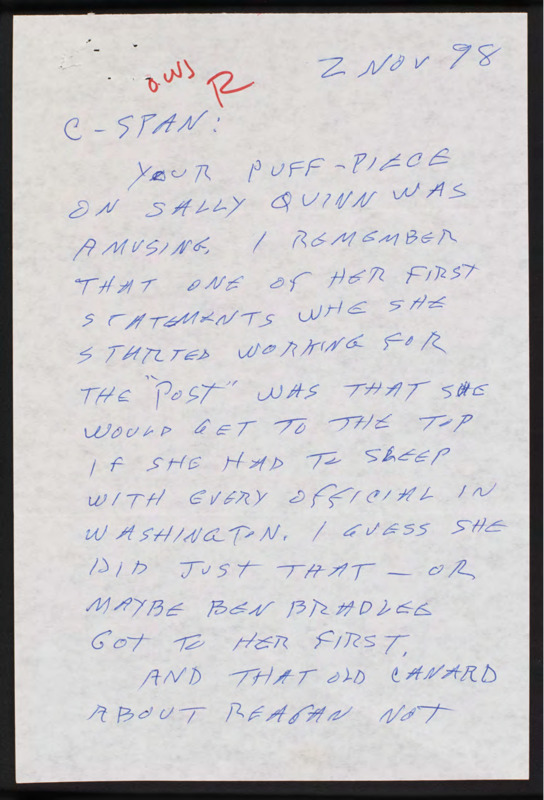 2 NOV 98
R
C-SPAN:
YOUR PUFF-PIECE
ON SALLY QUINN WAS
AMUSING. I REMEMBER
THAT ONE OF HER FIRST
STATEMENTS WHE SHE
STARTED WORKING FOR
THE "POST" WAS THAT SHE
WOULD GET TO THE TOP
IF SHE HAD TO SLEEP
WITH EVERY OFFICIAL IN
WASHINGTON. I GUESS SHE
DID JUST THAT — OR
MAYBE BEN BRADLEE
GOT TO HER FIRST.
AND THAT OLD CANARD
ABOUT REAGAN NOT